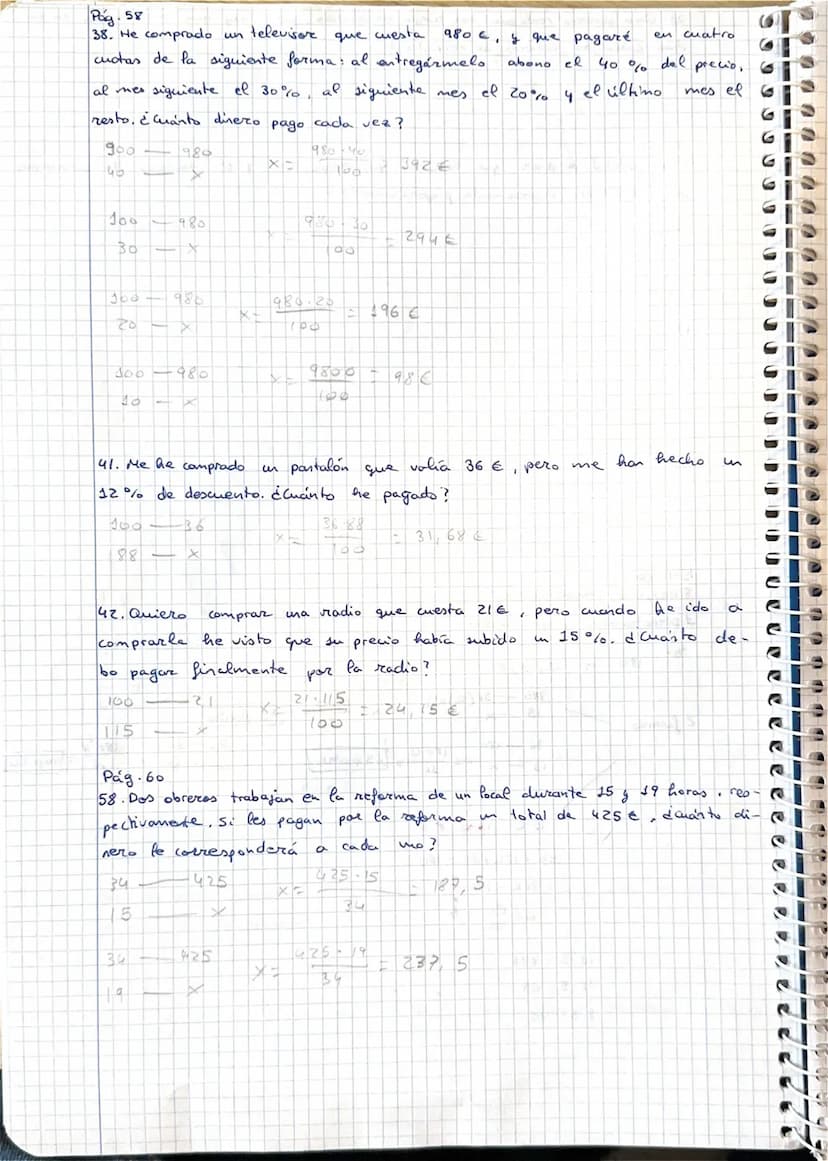 Pág. 58
38. He comprado un televisor que cuesta 980 €, y que pagaré en cuatro
cuotas de la siguiente forma: al entregármelo abono el 40 % del precio,
al mes siguiente el 30%, al siguiente mes el 20% y el último mes el
resto. ¿Cuánto dinero pago cada vez?
900 — 980 x = 980·40 / 100 = 392 €
40 — x
100 — 980 x = 980·30 / 100 = 294 €
30 — x
100 — 980 x = 980·20 / 100 = 196 €
20 — x
100 — 980 x = 9800 / 100 = 98 €
10 — x
41. Me he comprado un pantalón que valía 36 €, pero me han hecho un
12 % de descuento. ¿Cuánto he pagado?
100 — 36 x = 36·88 / 100 = 31,68 €
88 — x
42. Quiero comprar una radio que cuesta 21 €, pero cuando he ido a
comprarla he visto que su precio había subido un 15 %. ¿Cuánto de-
bo pagar finalmente por la radio?
100 — 21 x = 21·115 / 100 = 24,15 €
115 — x
Pág. 60
58. Dos obreros trabajan en la reforma de un local durante 15 y 19 horas, res-
pectivamente. Si les pagan por la reforma un total de 425 €, ¿cuánto di-
nero le corresponderá a cada uno?
34 — 425 x = 425·15 / 34 = 187,5
15 — x
34 — 425 x = 425·19 / 34 = 237,5
19 — x